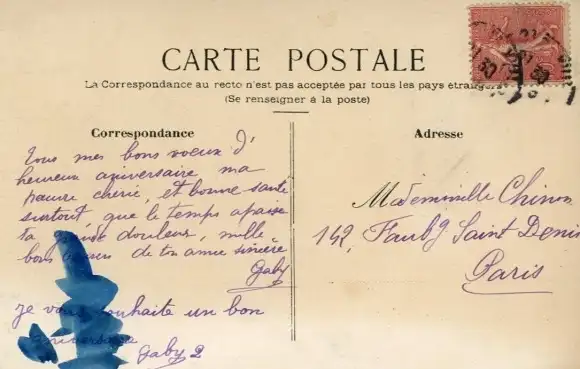 CARTE POSTALE
La Correspondance au recto n'est pas acceptée par tous les pays étrangers
(Se renseigner à la poste)
Correspondance
Tous mes bons voeux d'
heureux aniversaire ma
pauvre cherie, et bonne santé
surtout, que le temps apaise
ta douleur, mille
bons de ton amie sincère
Gaby
je vous souhaite un bon
aniversaire
Gaby 2
Adresse
Mademoiselle Chinon
142, Faubg Saint Denis
Paris